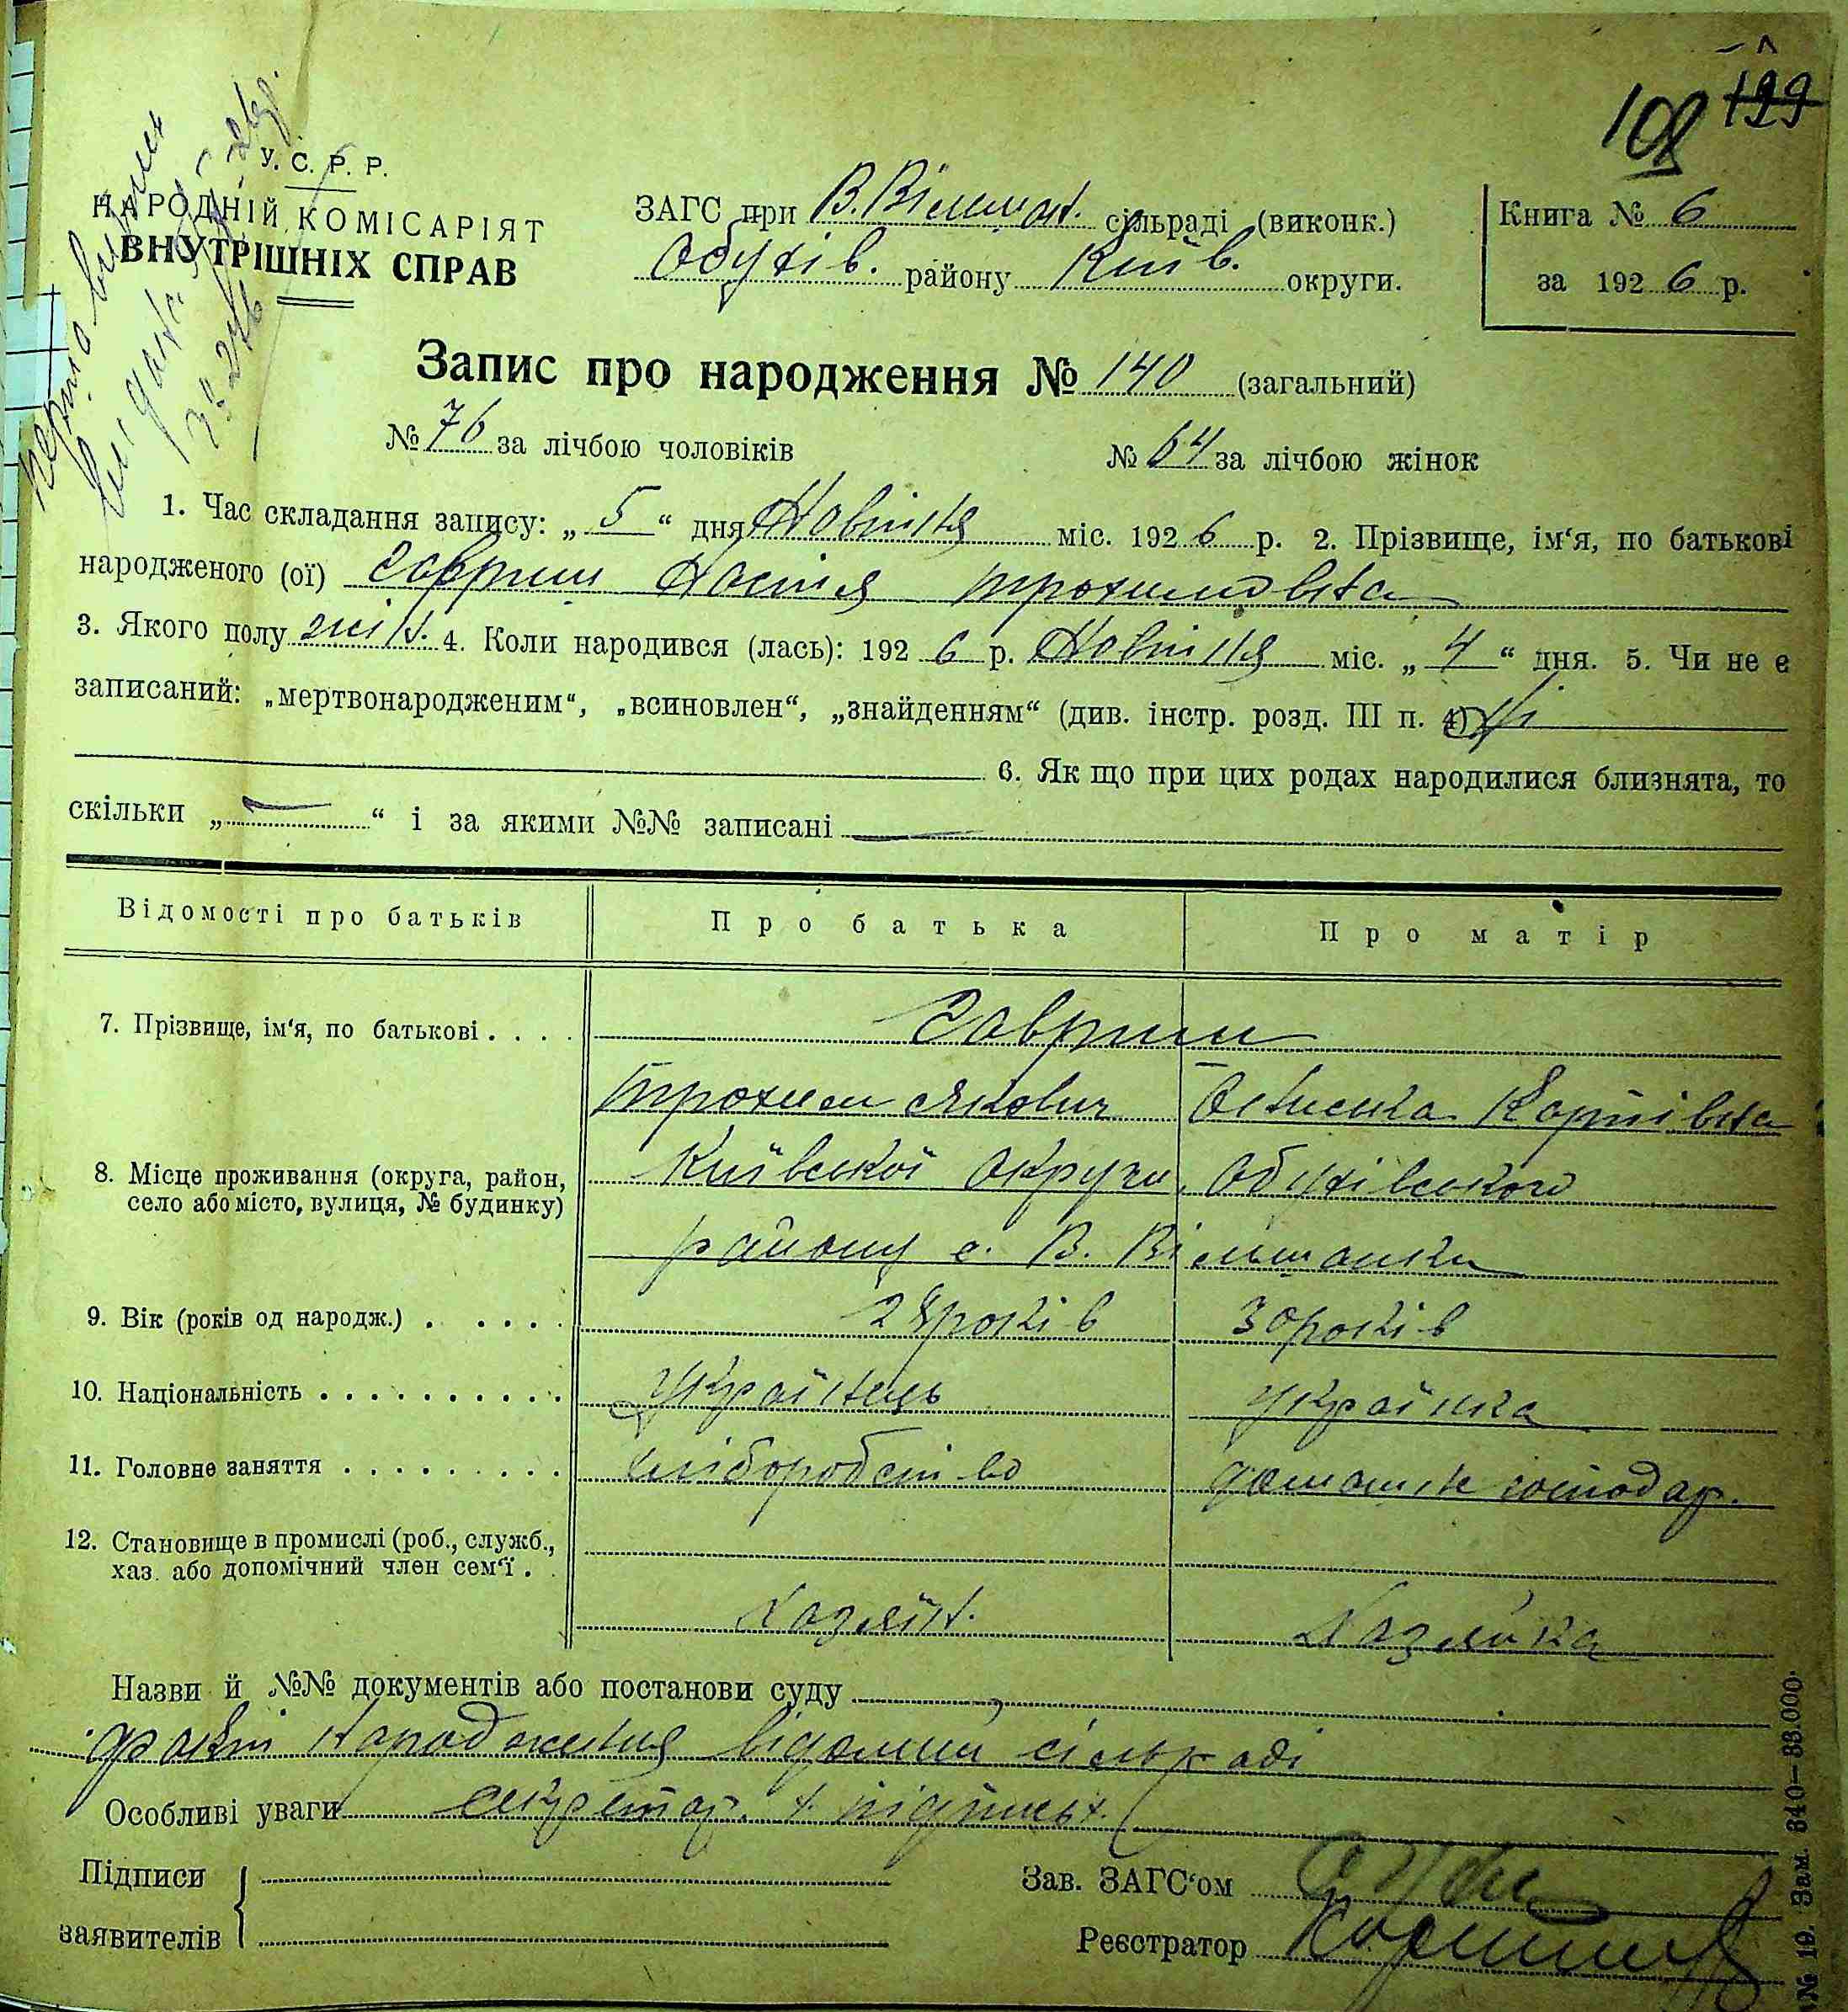 108 199
У. С. Р. Р.
НАРОДНІЙ КОМІСАРІЯТ
ВНУТРІШНІХ СПРАВ
ЗАГС при В. Вільшан. сільраді (виконк.)
Обухів. району Київ. округи.
Книга № 6
за 1926 р.
Запис про народження № 140 (загальний)
№ 76 за лічбою чоловіків № 64 за лічбою жінок
1. Час складання запису: „ 5 “ дня Жовтня міс. 1926 р. 2. Прізвище, ім‘я, по батькові
народженого (ої) Гавриш Настія Трохимовна
3. Якого полу жін. 4. Коли народився (лась): 192 6 р. Жовтня міс. „ 4 “ дня. 5. Чи не є
записаний: „мертвонародженим“, „всиновлен“, „знайденням“ (див. інстр. розд. III п. 4) Ні
6. Як що при цих родах народилися близнята, то
скільки „ — “ і за якими №№ записані —
Відомості про батьків Про батька Про матір
7. Прізвище, ім‘я, по батькові . . . . Гавриш
Трохим Якович Карпівна
8. Місце проживання (округа, район,
село або місто, вулиця, № будинку)
Київської округи, Обухівського
району с. В. Вільшанки
9. Вік (років од народж.) . . . . . 28 років 30 років
10. Національність . . . . . . . . . . Українець Українка
11. Головне заняття . . . . . . . . . хліборобство домашн господар.
12. Становище в промислі (роб., служб.,
хаз. або допомічний член сем‘ї . .
Хазяїн. Хазяйка
Назви й №№ документів або постанови суду
факт народження відомий сільраді
Особливі уваги секретар.
Підписи
заявителів
Зав. ЗАГС‘ом
Реєстратор
№ 19. Зам. 340—33.000.